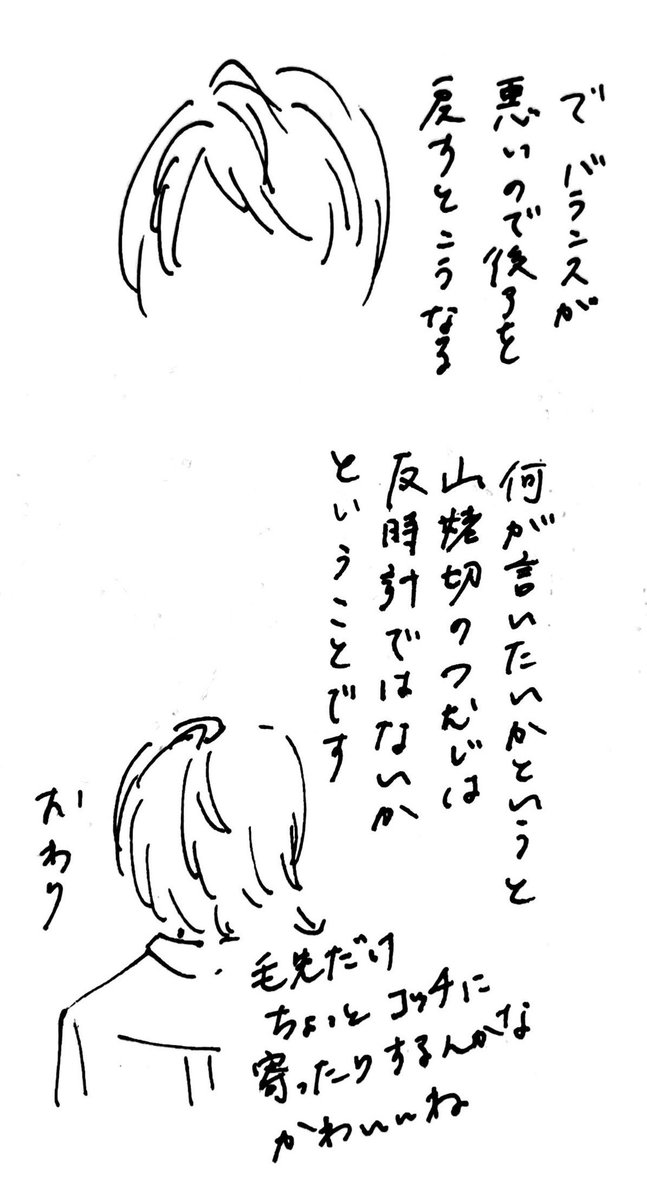 で バランスが
悪いので後ろを
戻すとこうなる
何が言いたいかというと
山姥切のつむじは
反時計ではないか
ということです
おわり
毛先だけ
ちょっとコッチに
寄ったりするんかな
かわいいね